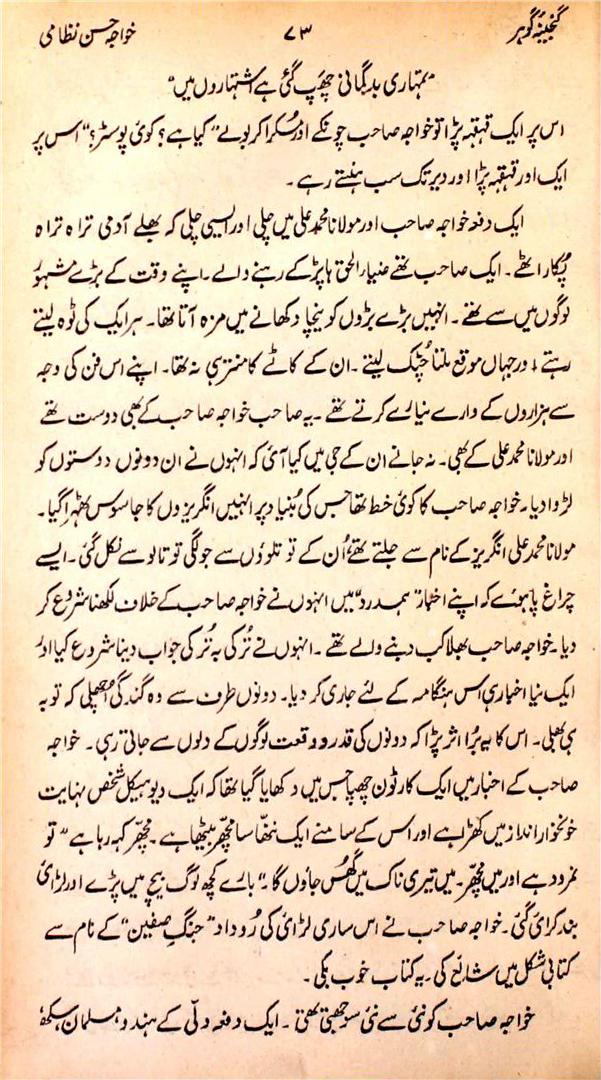 گنجینۂ گوہر ۷۳ خواجہ حسن نظامی
"تمہاری بدگمانی چھپ گئی ہے اشتہاروں میں"
اس پر ایک قہقہہ پڑا تو خواجہ صاحب چونکے اور مسکرا کر بولے "کیا ہے؟ کوئی پوسٹر؟" اس پر
ایک اور قہقہہ پڑا اور دیر تک سب ہنستے رہے۔
ایک دفعہ خواجہ صاحب اور مولانا محمد علی میں چلی اور ایسی چلی کہ بھلے آدمی تراہ تراہ
پکار اٹھے۔ ایک صاحب تھے ضیاء الحق ہاپڑ کے رہنے والے۔ اپنے وقت کے بڑے مشہور
لوگوں میں سے تھے۔ انہیں بڑے بڑوں کو نیچا دکھانے میں مزہ آتا تھا۔ ہر ایک کی ٹوہ لیتے
رہتے اور جہاں موقع ملتا چٹک لیتے۔ ان کے کاٹے کا منتر ہی نہ تھا۔ اپنے اس فن کی وجہ
سے ہزاروں کے وارے نیارے کرتے تھے۔ یہ صاحب خواجہ صاحب کے بھی دوست تھے
اور مولانا محمد علی کے بھی۔ نہ جانے ان کے جی میں کیا آئی کہ انہوں نے ان دونوں دوستوں کو
لڑوا دیا۔ خواجہ صاحب کا کوئی خط تھا جس کی بنیاد پر انہیں انگریزوں کا جاسوس ٹھہرایا گیا۔
مولانا محمد علی انگریز کے نام سے جلتے تھے اُن کے تو تلوؤں سے جو لگی تو تالو سے نکل گئی۔ ایسے
چراغ پا ہوئے کہ اپنے اخبار "ہمدرد" میں انہوں نے خواجہ صاحب کے خلاف لکھنا شروع کر
دیا۔ خواجہ صاحب بھلا کب دبنے والے تھے۔ انہوں نے تُرکی بہ تُرکی جواب دینا شروع کیا اور
ایک نیا اخبار ہی اس ہنگامہ کے لئے جاری کر دیا۔ دونوں طرف سے وہ گندگی اُچھلی کہ توبہ
ہی بھلی۔ اس کا یہ بُرا اثر پڑا کہ دونوں کی قدر و وقعت لوگوں کے دلوں سے جاتی رہی۔ خواجہ
صاحب کے اخبار میں ایک کارٹون چھپا جس میں دکھایا گیا تھا کہ ایک دیو ہیکل شخص نہایت
خونخوار انداز میں کھڑا ہے اور اس کے سامنے ایک ننھا سا مچھر بیٹھا ہے۔ مچھر کہہ رہا ہے "تو
نمرود ہے اور میں مچھر۔ میں تیری ناک میں گھُس جاؤں گا۔" بارے کچھ لوگ بیچ میں پڑے اور لڑائی
بند کرائی گئی۔ خواجہ صاحب نے اس ساری لڑائی کی رُوداد "جنگِ صفین" کے نام سے
کتابی شکل میں شائع کی۔ یہ کتاب خوب بکی۔
خواجہ صاحب کو نئی سے نئی سوجھتی تھی۔ ایک دفعہ دلّی کے ہندو، مسلمان، سکھ